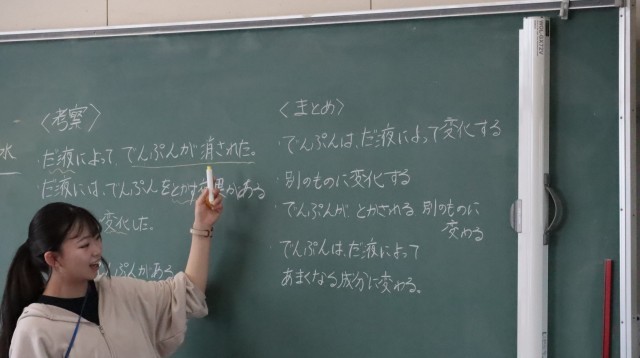 水
〈考察〉
・だ液によって、でんぷんが消された。
・だ液には、でんぷんをとかす がある
変化した。
ぷんがある
〈まとめ〉
・でんぷんは、だ液によって変化する
・別のものに変化する
・でんぷんが とかされる 別のものに
変わる
・でんぷんは、だ液によって
あまくなる成分に変わる。